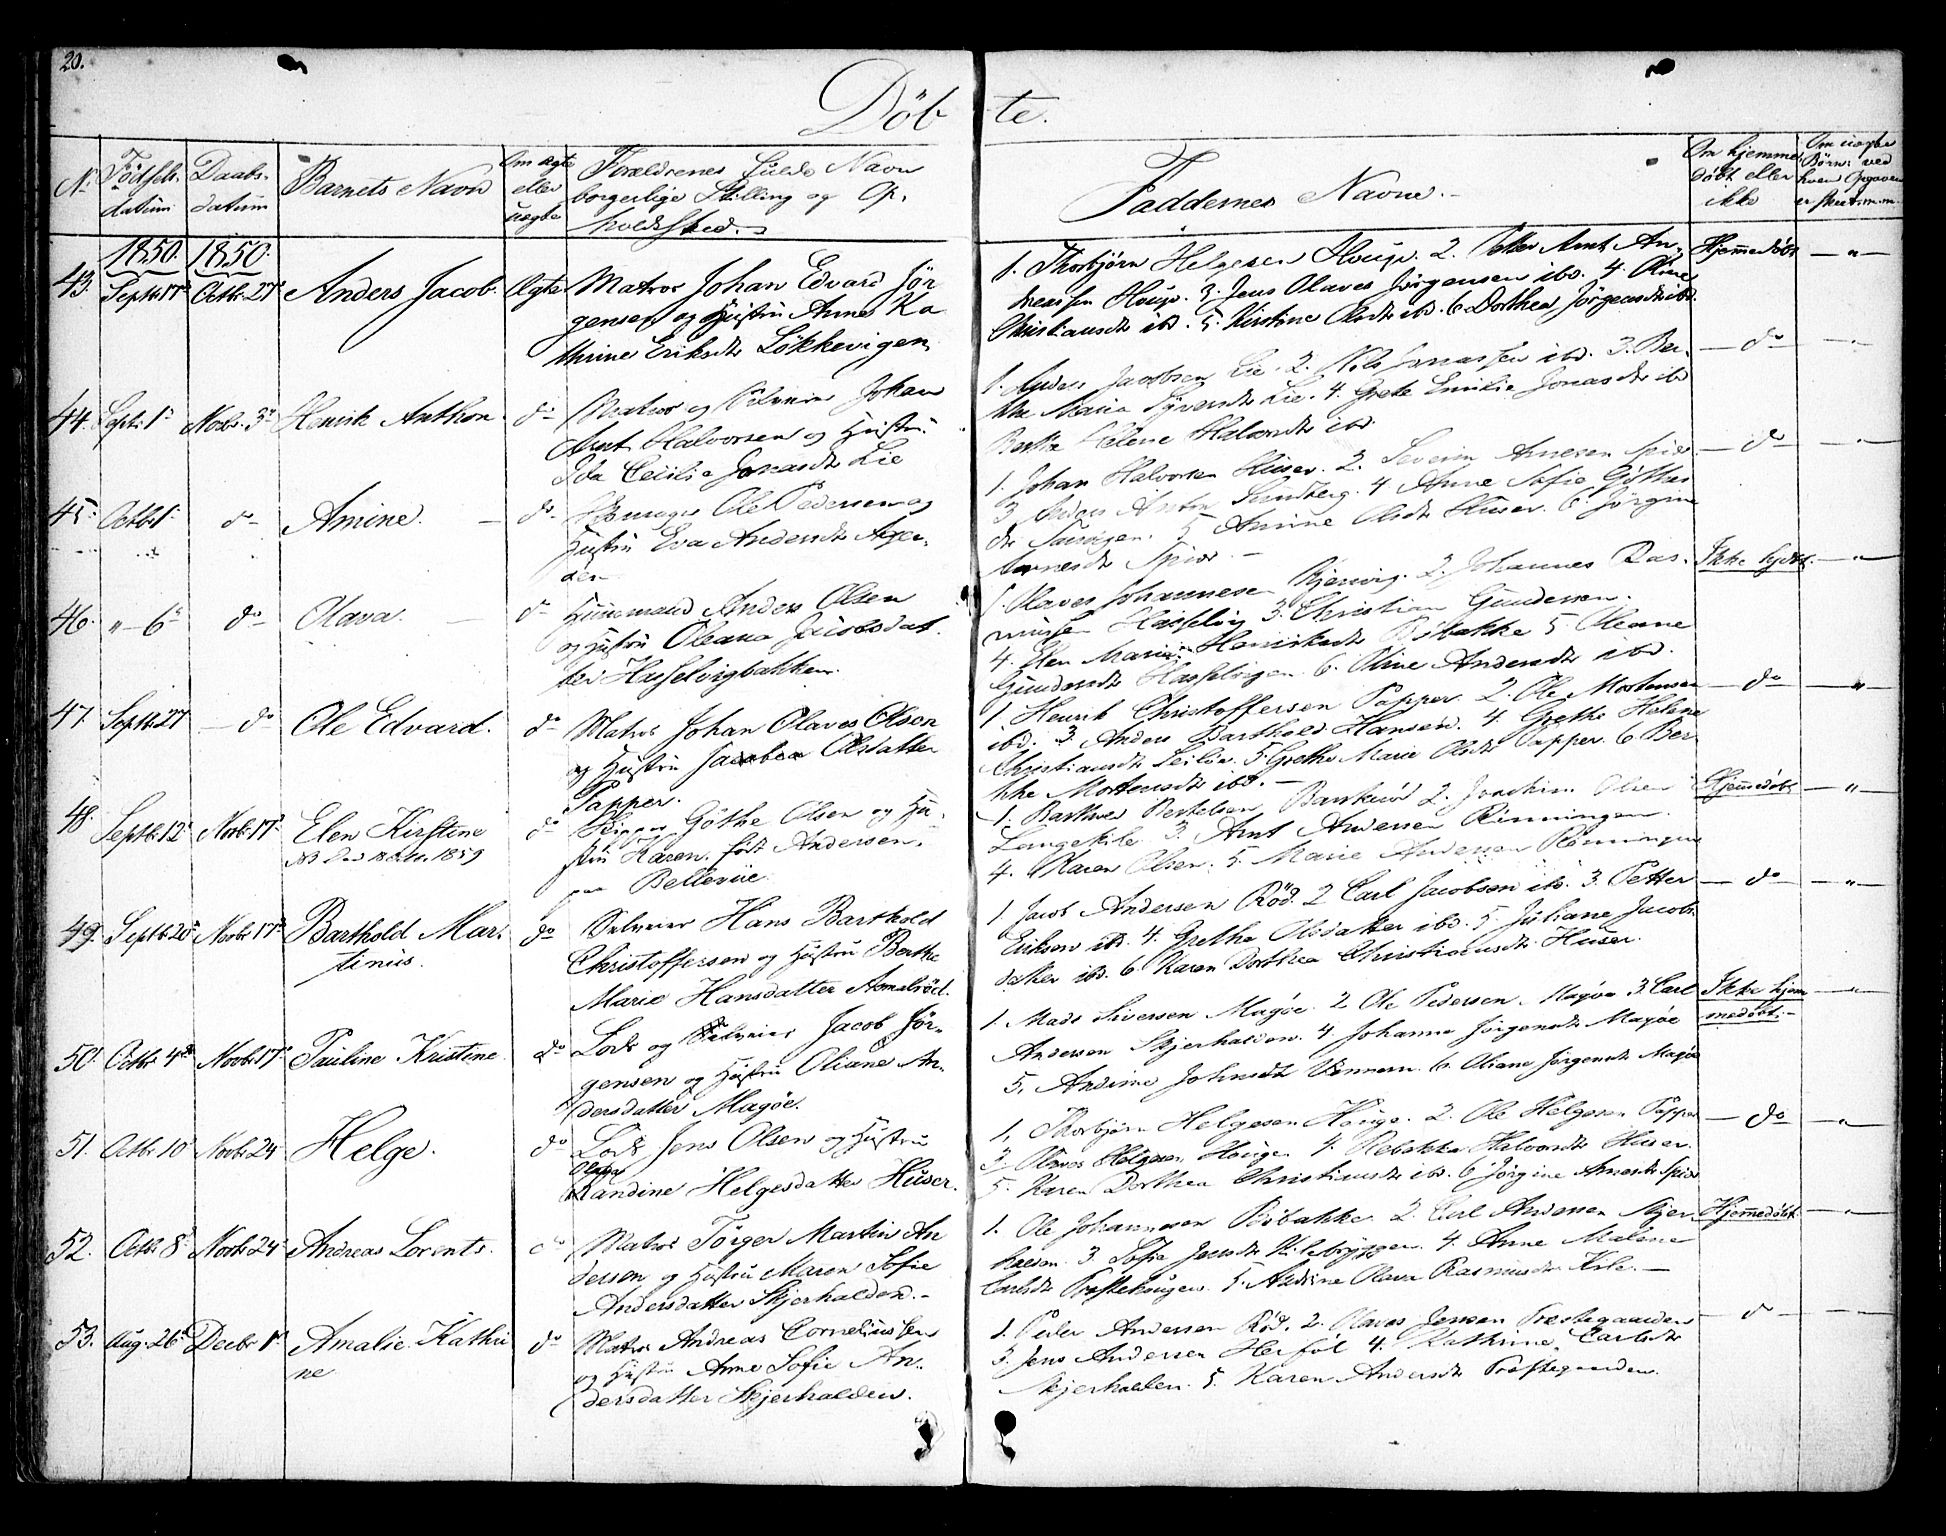 20.
Döb te.
N. Födsels- datum Daabs- datum Barnets Navn Om ægte eller uægte Forældrenes fulde Navn borgerlige Stilling og Op- holdssted. Faddernes Navne. Om hjemme- döbt eller ikke Om uægte Børn: ved hvem Opgaven er skeet m.m.
1850. 1850.
43. Septr 17de Octbr 27de Anders Jacob. Ægte Matros Johan Edvard Jör
gensen og Hustru Anne Ka
thrine Eriksdtr Lökkevigen
1. Thorbjörn Helgesen Houge. 2. Petter Arnt An-
dreassen Houge. 3. Jens Olaves Jörgensen ibd. 4. Oline
Christiansdtr ibd. 5. Kirstine Olsdtr ibd. 6 Dorthea Jörgensdtr ibd.
Hjemmedöbt — " —
44. Septr 1ste Novbr 3die Henrik Anthon. do Matros og Selveier Johan
Arnt Halvorsen og Hustru
Ida Cecilie Jonasdtr Lie
1. Anders Jacobsen Lie. 2. Nils Jonassen ibd. 3. Ber-
the Maria Syversdtr Lie. 4. Grete Emilie Jonasdtr ibd
Berthe Helene Halvorsdtr ibd.
— do — "
45. Octbr 1ste do Amine. — do Ole Pedersen og
Hustru Eva Andersdtr
den
1. Johan Halvorsen Huser. 2. Severin Arnesen Spier.
3 Anders Anton Sundberg. 4 Anne Sofie Göthes
dtr 5 Amine Olsdtr Huser. 6. Jörgine
Arnesdtr Spier. —
— do — "
46. " — 6te do Olava. — do Huusmand Anders Olsen
og Hustru Oleana Jacobsdat
ter Hasselvigbakken.
1. Olaves Johannesen Kjervig. 2. Johannes Ras-
mussen Hasselvig 3. Christian Gundersen.
4. Elen Marie Henriksdtr Böbakke 5 Oleane
Gundersdtr Hasselvigen. 6. Oline Andersdtr ibd.
Ikke hjdbt. — " —
47. Septr 27 — do Ole Edvard. do Matros Johan Olaves Olsen
og Hustru Jacobea Olsdatter
Papper.
1. Henrik Christoffersen Papper. 2. Ole Mortensen
ibd. 3. Anders Barthold Hansen. 4. Grethe Helene
Christiansdtr Leilie. 5. Grethe Marie Olsdtr Papper. 6 Ber
the Mortensdtr ibd. —
— do — "
48. Septr 12te Novbr 17de Elen Kirstine
1859
do Skipper Göthe Olsen og Hu-
stru Karen född Andersen
paa Bellevüe.
1. Barthed Bertelsen 2. Joachim Olsen
Langekile. 3. Arnt Andersen Rönningen.
4. Karen Olsen. 5. Marie Andersen Rönningen
Hjemmedöbt — " —
49. Septr 20de Novbr 17de Barthold Mar-
tinus.
do Selveier Hans Barthold
Christoffersen og Hustru Berthe
Marie Hansdatter
1. Jacob Andersen Röd. 2 Carl Jacobsen ibd. 3. Petter
Eriksen ibd. 4. Grethe Olsdatter ibd. 5 Juliane Jacobs
datter ibd. 6 Karen Dorthea Christiansdtr Huser.
— do — " —
50. Octbr 4de Novbr 17de Pauline Kristine do Lods og Selveier Jacob Jör-
gensen og Hustru Oliane An-
dersdatter Magöe.
1. Mads Siversen Magöe. 2 Ole Pedersen Magöe 3. Carl
Andersen Skjerhalden. 4 Johanne Jörgensdtr Magöe
5. Andine Johnsdtr 6. Oliane Jörgensdtr Magöe
Ikke hjem
medöbt. — " —
51. Octbr 10 Novbr 24 Helge. do Lods Jens Olsen og Hustru
Randine Helgesdatter Huser.
1. Thorbjörn Helgesen Houge. 2. Ole Helgesen Papper
3. Olaves Helgesen Hougen 4 Rebekka Halvorsdtr Huser.
5. Karen Dorthea Christiansdtr ibd. 6 Jörgine Arnesdtr Spier
— do — "
52. Octbr 8 Novbr 24 Andreas Lorents. do Matros Törger Martin An
dersen og Hustru Maren Sofie
Andersdatter Skjerhalden. —
1. Ole Johannesen Böbakke. 2. Carl Andersen Skjer-
halden. 3 Sofie Jensdtr 4. Anne Malene
Carlsdtr 5. Andrine Olava Rasmusdtr Kile. —
Hjemmedöbt — " —
53. Aug. 26de Decbr 1ste Amalie Kathri
ne
do Matros Andreas Corneliussen
og Hustru Anne Sofie An-
dersdatter Skjerhalden.
1. Peder Andersen Röd. 2. Olaves Jensen Præstegaarden
3. Jens Andersen Herföl 4. Kathrine Carlsdtr
Skjerhalden. 5. Karen Andersdtr Præstegaarden.
— do — —